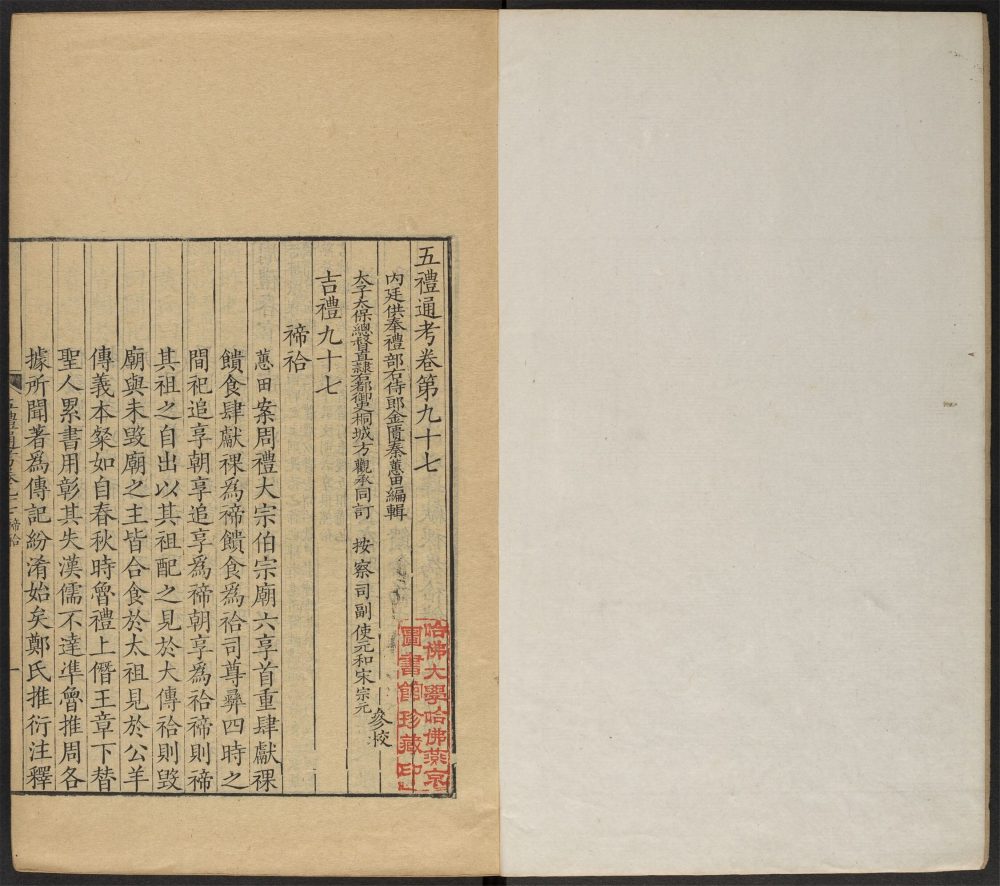 五禮通考卷第九十七
內廷供奉禮部右侍郎金匱秦蕙田編輯
太子太保總督直隸右都御史桐城方觀承同訂
按察司副使元和宋宗元參校
吉禮九十七
禘祫
蕙田案周禮大宗伯宗廟六享首重肆獻祼
饋食肆獻祼為禘饋食為祫司尊彝四時之
間祀追享朝享追享為禘朝享為祫禘則禘
其祖之自出以其祖配之見於大傳祫則毀
廟與未毀廟之主皆合食於太祖見於公羊
傳義本粲如自春秋時魯禮上僭王章下替
聖人累書用彰其失漢儒不達準魯推周各
據所聞著為傳記紛淆始矣鄭氏推衍注釋
禘祫
一
哈佛大學哈佛燕京
圖書館珍藏印